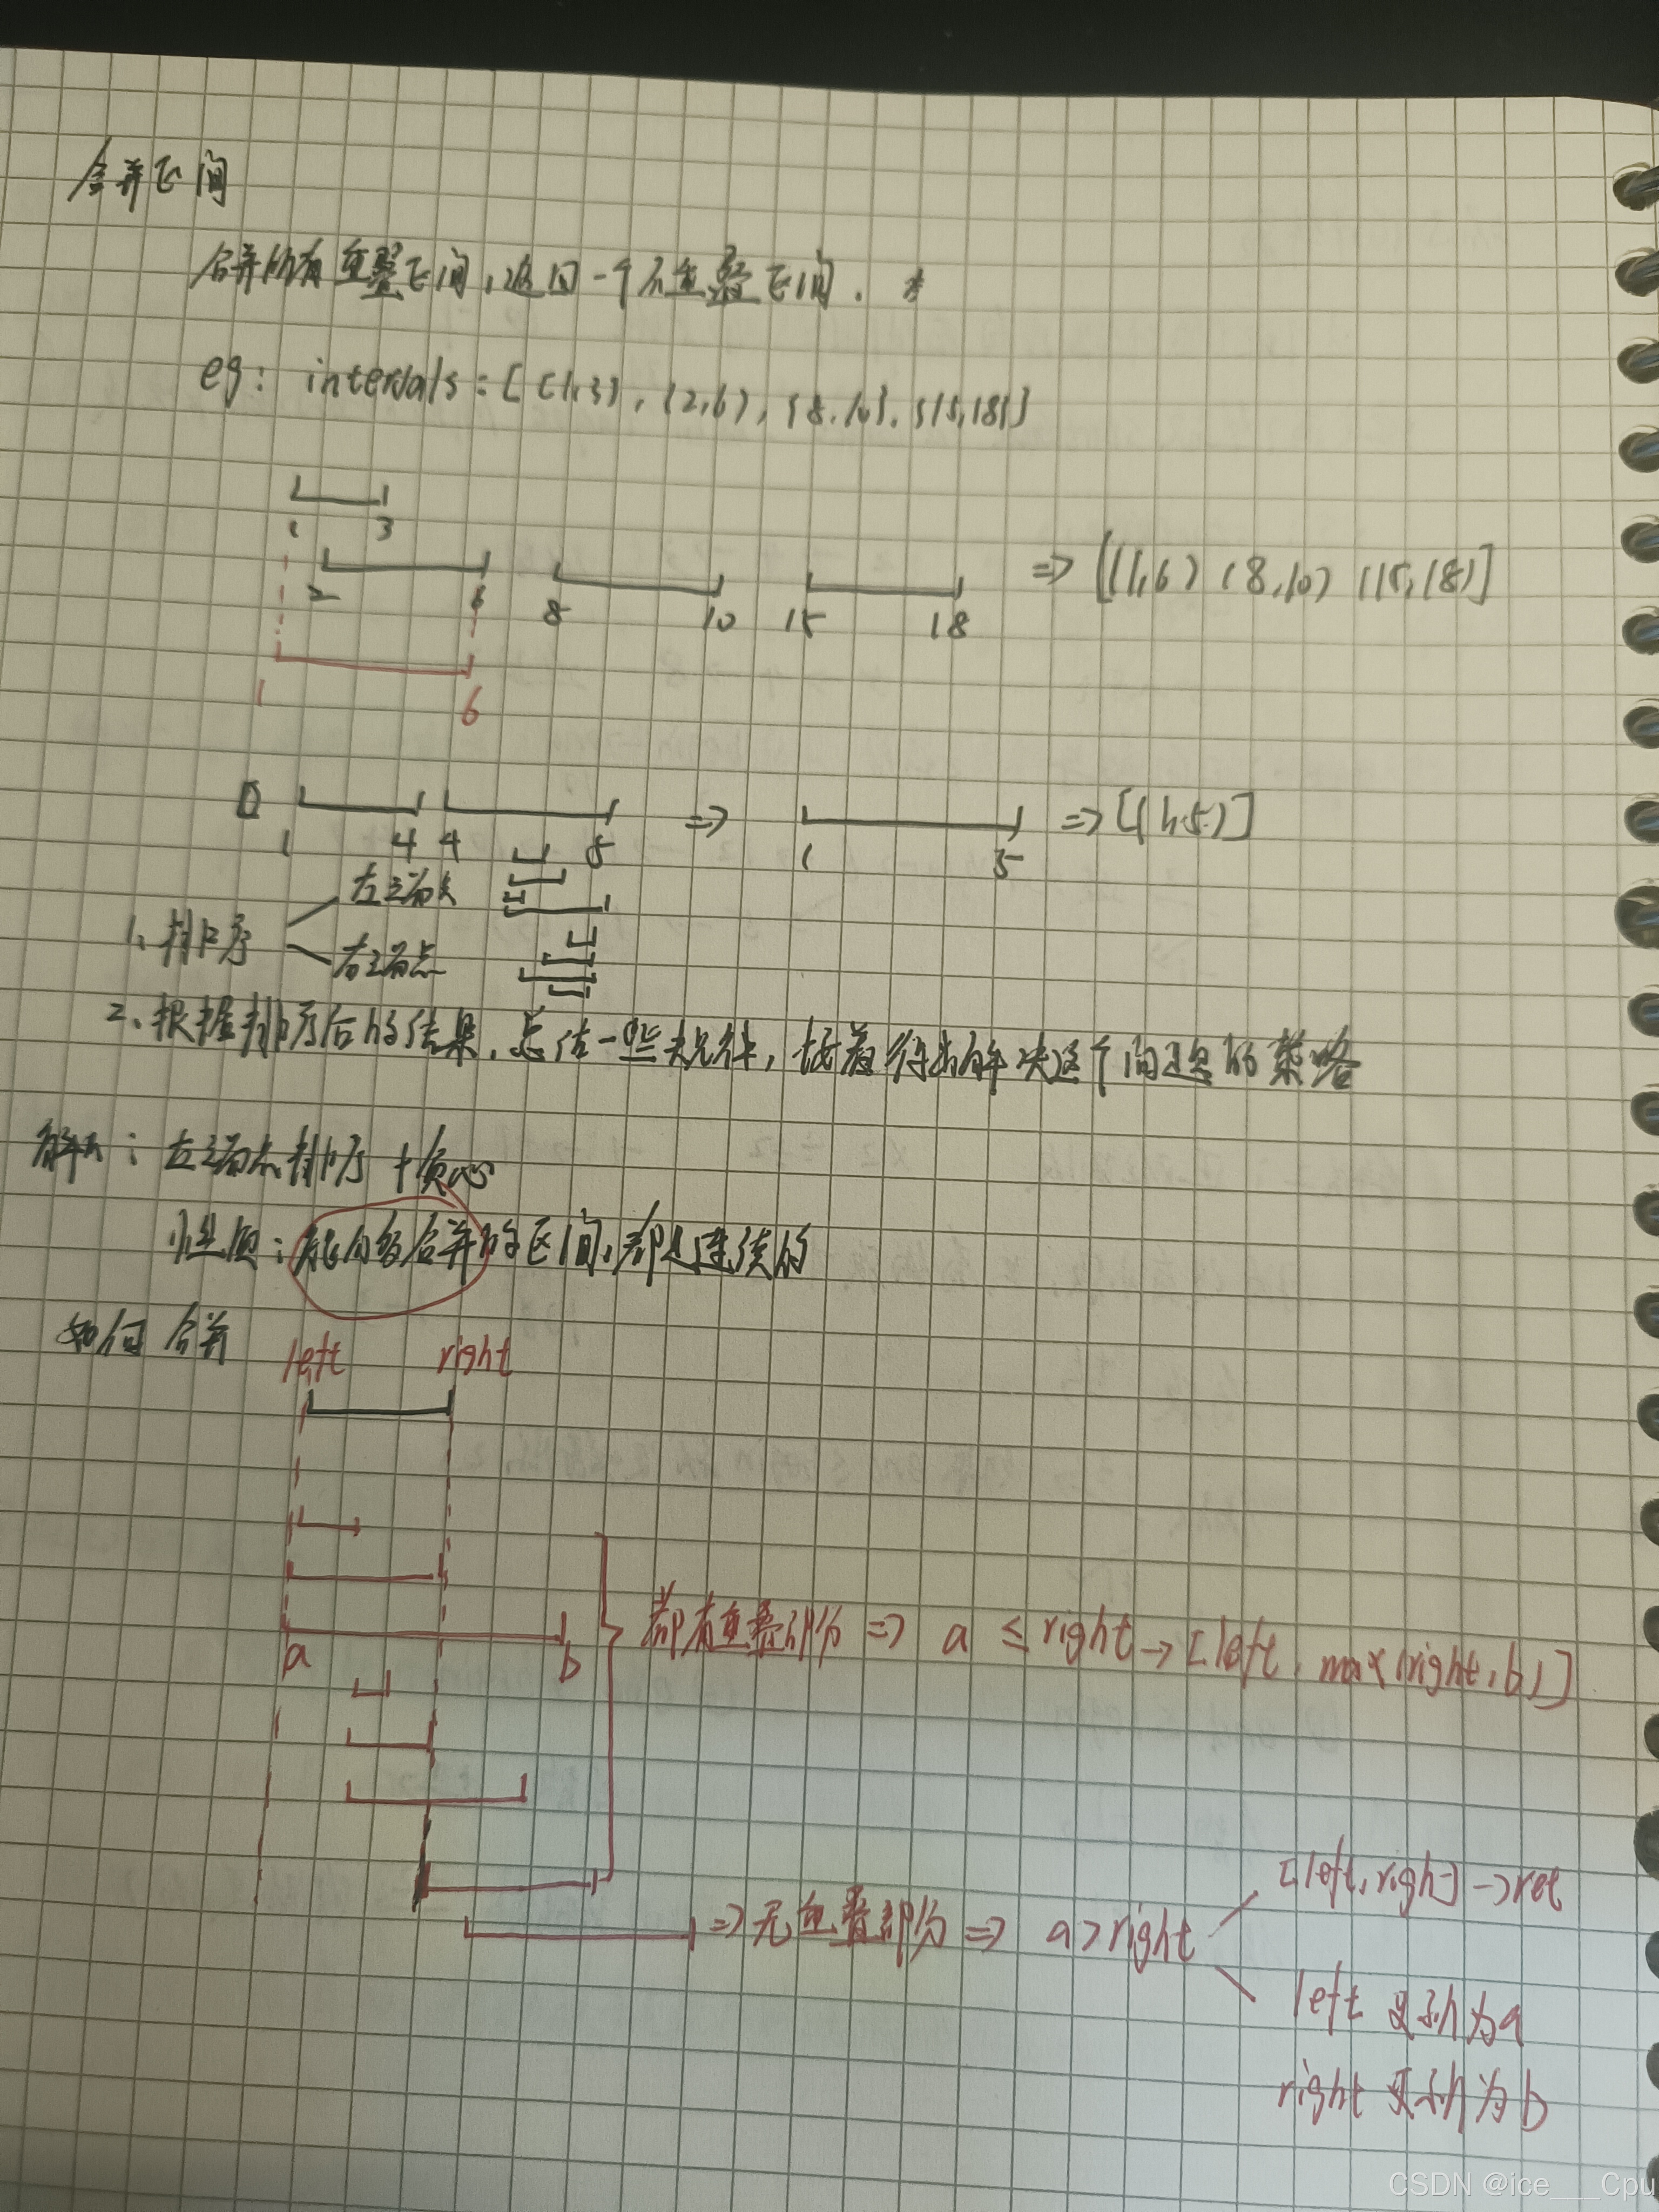 合并区间
合并所有重叠区间,返回一个不重叠区间.
eg: intervals = [[1,3], (2,6), {8,10}, {15,18}]
1 3
2 6 8 10 15 18 => [(1,6) (8,10) (15,18)]
1 6
1 4 4 5 => 1 5 => [(1,5)]
1、排序 左端点
右端点
2、根据排序后的结果,总结一些规律,接着得出解决这个问题的策略
解: 左端点排序 + 贪心
性质:能够合并的区间,都是连续的
如何合并
left right
a b 都有重叠部分 => a ≤ right → [left, max(right, b)]
=> 无重叠部分 => a > right
[left, right] → ret
left 更新为a
right 更新为b
CSDN @ice___Cpu